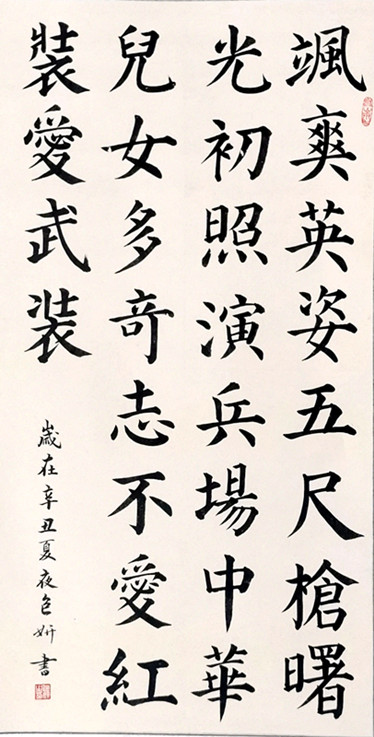 颯爽英姿五尺槍曙
光初照演兵場中華
兒女多奇志不愛紅
裝愛武装
歲在辛丑夏夜包妍書